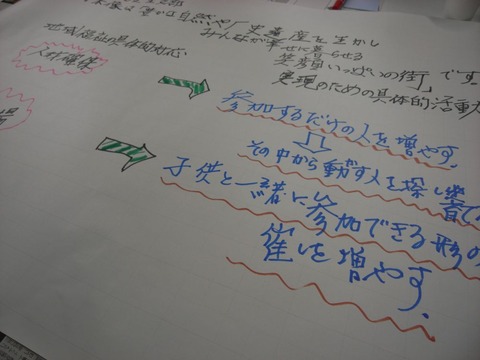 自然や歴史
を生かし
みんなが幸せに暮らせる
笑顔いっぱいの街」です。
実現のための具体的活動
地域福祉の具体的対応
人材確保
参加するだけの人を増やす。
その中から動す人を探し
子供と一緒に参加できる形の
催しを増やす。